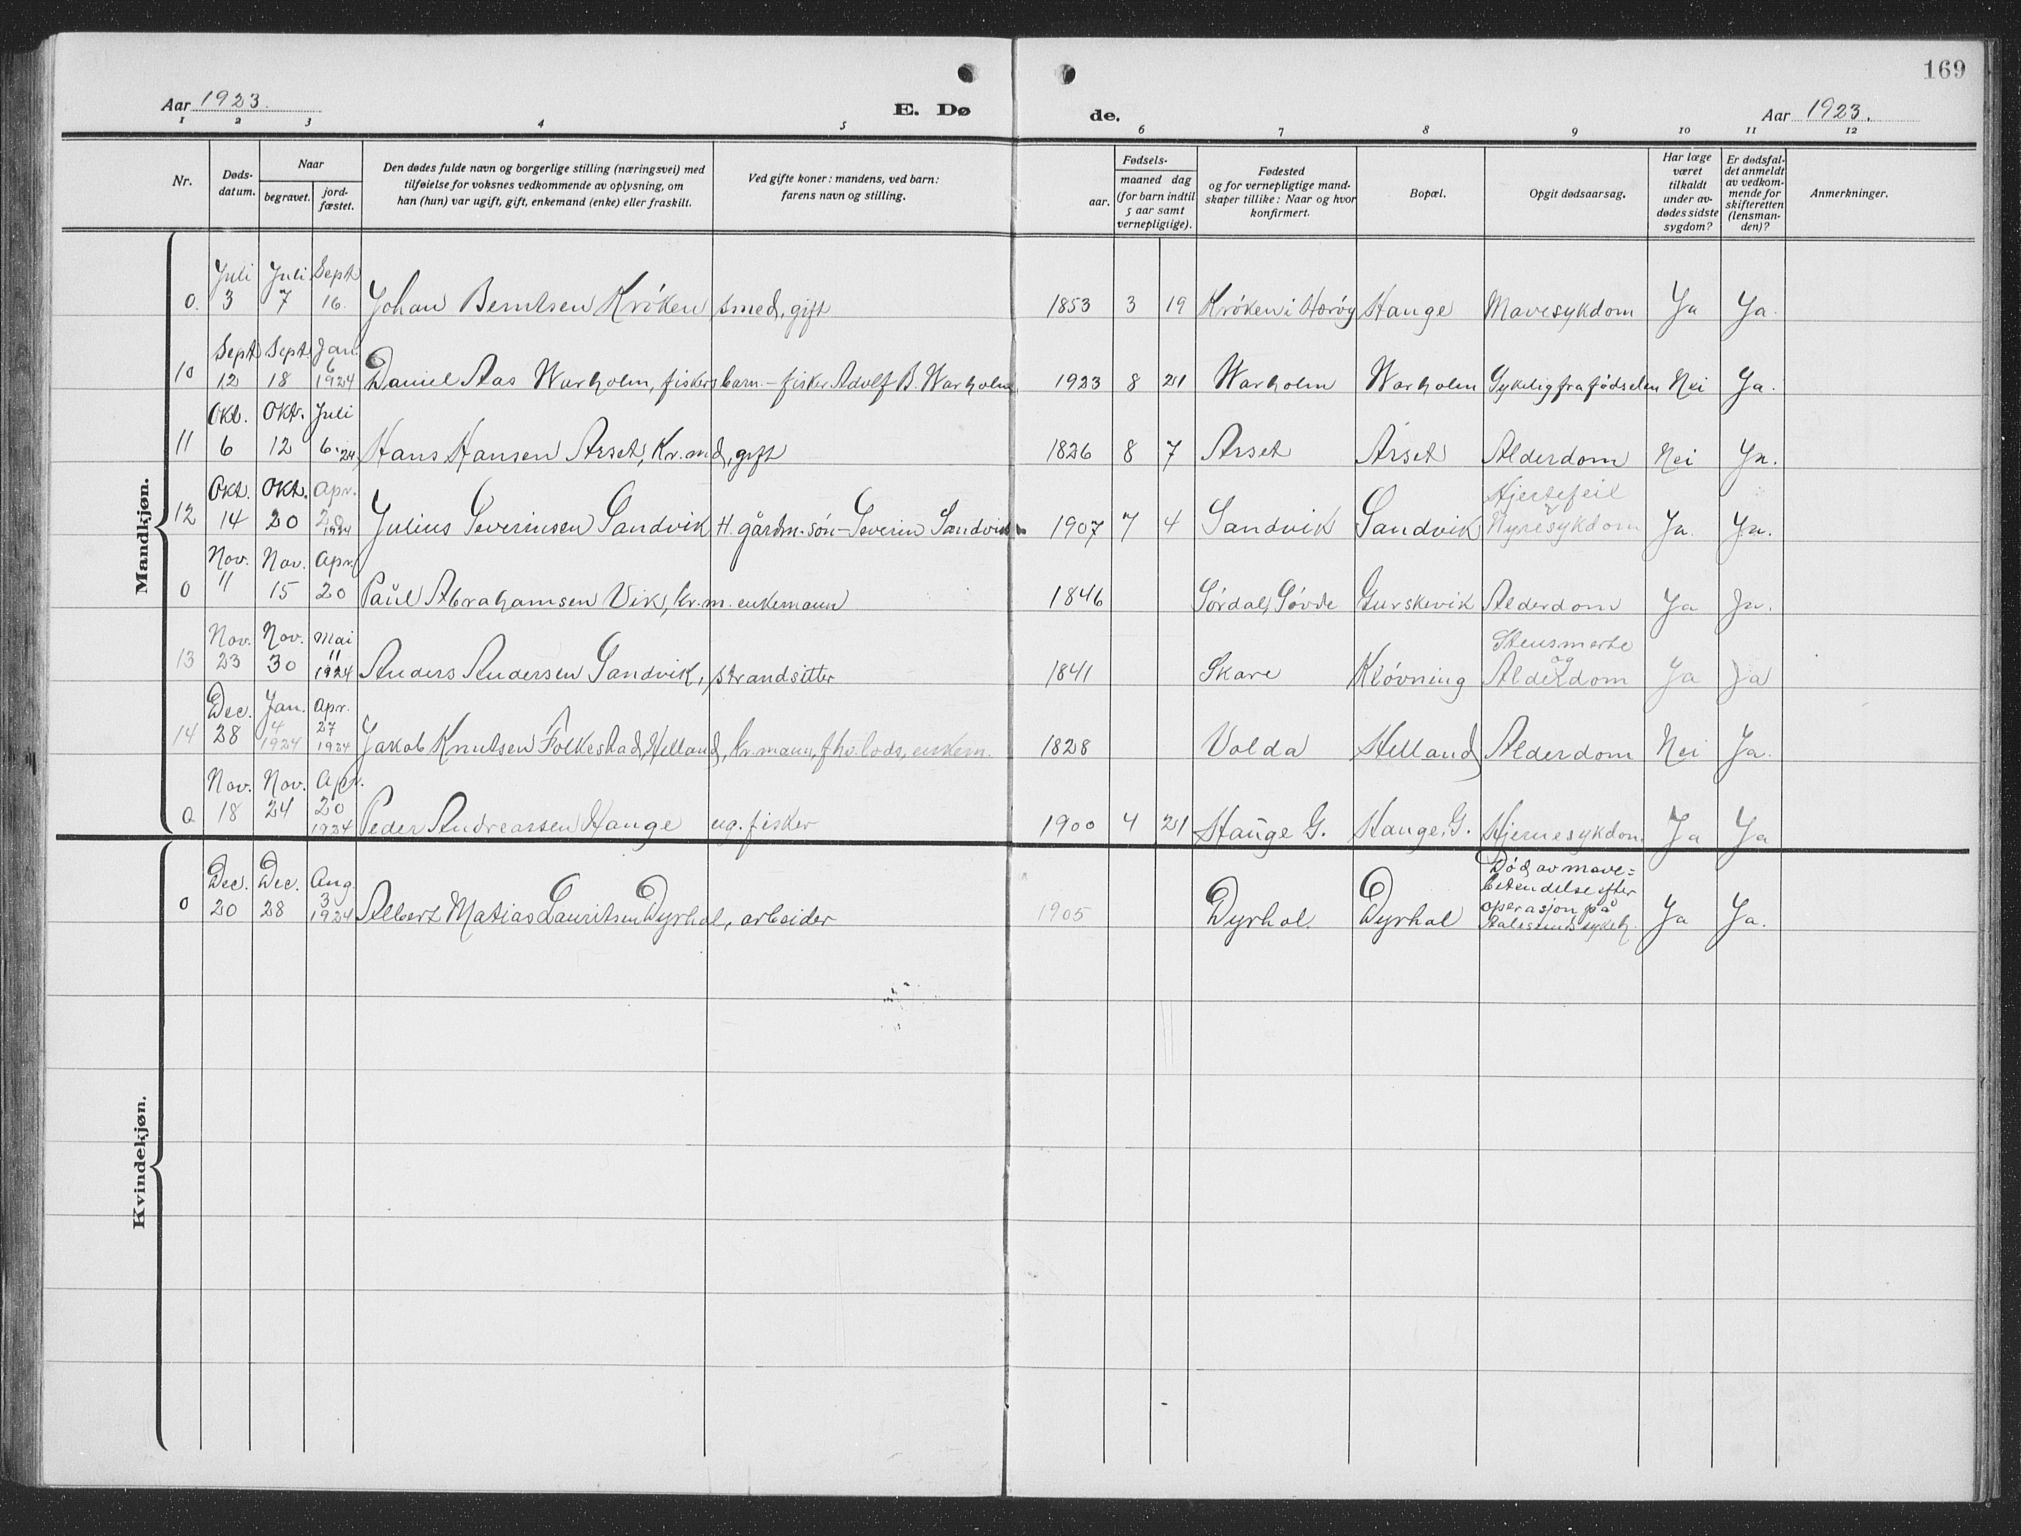 169
Aar 1923. E. Dø de. Aar 1923.
1 2 3 4 5 6 7 8 9 10 11 12
Nr.
Døds-
datum.
Naar
begravet.
jord-
fæstet.
Den dødes fulde navn og borgerlige stilling (næringsvei) med
tilføielse for voksnes vedkommende av oplysning, om
han (hun) var ugift, gift, enkemand (enke) eller fraskilt.
Ved gifte koner: mandens, ved barn:
farens navn og stilling.
Fødsels-
aar.
maaned dag
(for barn indtil
5 aar samt
vernepligtige).
Fødested
og for vernepligtige mand-
skaper tillike: Naar og hvor
konfirmert.
Bopæl.
Opgit dødsaarsag.
Har læge
været
tilkaldt
under av-
dødes sidste
sygdom?
Er dødsfal-
det anmeldt
av vedkom-
mende for
skifteretten
(lensman-
den)?
Anmerkninger.
Mandkjøn.
Juli Juli Sept
0. 3 7 16. Johan Berntsen Krøken smed, gift 1853 3 19 Krøken i Herøy Hauge Mavesykdom Ja Ja.
Sept Sept Jan.
6
10 12 18 1924 Daniel Aas Warholm, fiskers barn - fisker Adolf B. Warholm 1923 8 21 Warholm Warholm Sykelig fra fødselen Nei Ja.
Okt. Okt. Juli
11 6 12 6.24 Hans Hansen Arset, Kr.md, gift 1826 8 7 Arset Arset Alderdom Nei Ja.
Okt. Okt. Apr. Hjertefeil
12 14 20 20 1924 Julius Severinsen Sandvik H. gårdm. søn - Severin Sandvik 1907 7 4 Sandvik Sandvik Nyresykdom Ja. Ja.
Nov. Nov. Apr.
0 11 15 20 Paul Abrahamsen Vik, kr.m. enkemann 1846 Sørdal, Søvde Gurskevik Alderdom Ja Ja.
Nov. Nov. Mai Stensmerte
11 og
13 23 30 1924 Anders Andersen Sandvik, strandsitter 1841 Skare Kløvning Alderdom Ja Ja
Dec. Jan. Apr.
4 27
14 28 1924 1924 Jakob Knutsen Folkestad, Helland, kr.mann, fhv. lods, enkem. 1828 Volda Helland Alderdom Nei Ja.
Nov. Nov. Apr.
20
0 18 24 1924 Peder Andreassen Hauge ug. fisker 1900 4 21 Hauge G. Hauge, G. Hjernesykdom Ja Ja
Kvindekjøn.
Dec. Dec. Aug. Død av mave-
3 betendelse efter
0 20 28 1924 Albert Matias Lauritsen Dyrhol, arbeider 1905 Dyrhol. Dyrhol operasjon på Ja Ja.
Aalesunds sykeh.